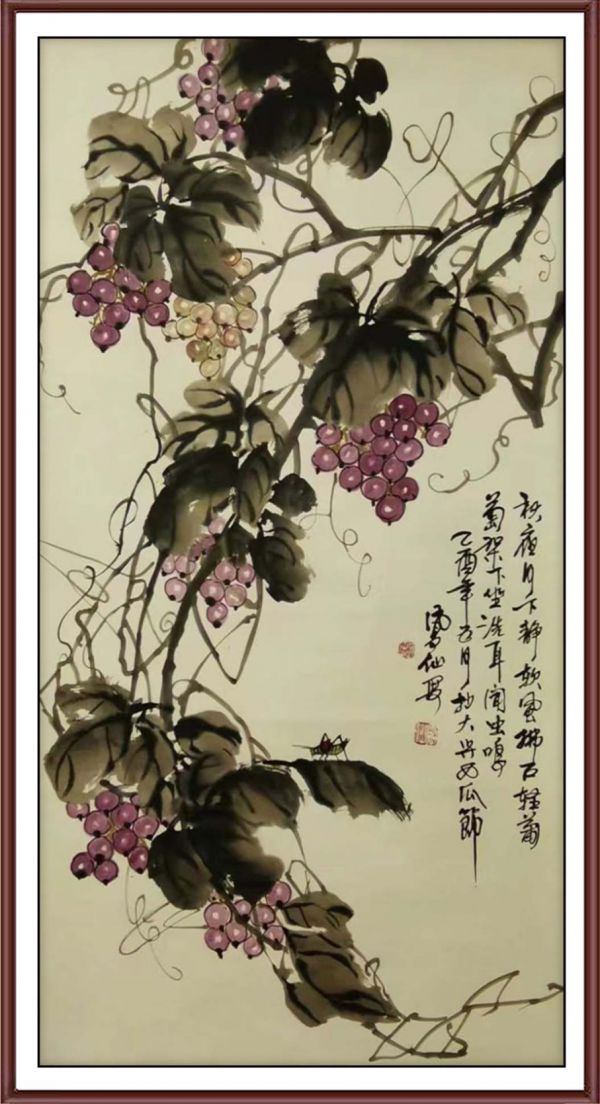 秋夜月下静软風拂面轻葡
萄架下坐洗耳闻虫鸣
乙酉年五月於大兴西瓜節